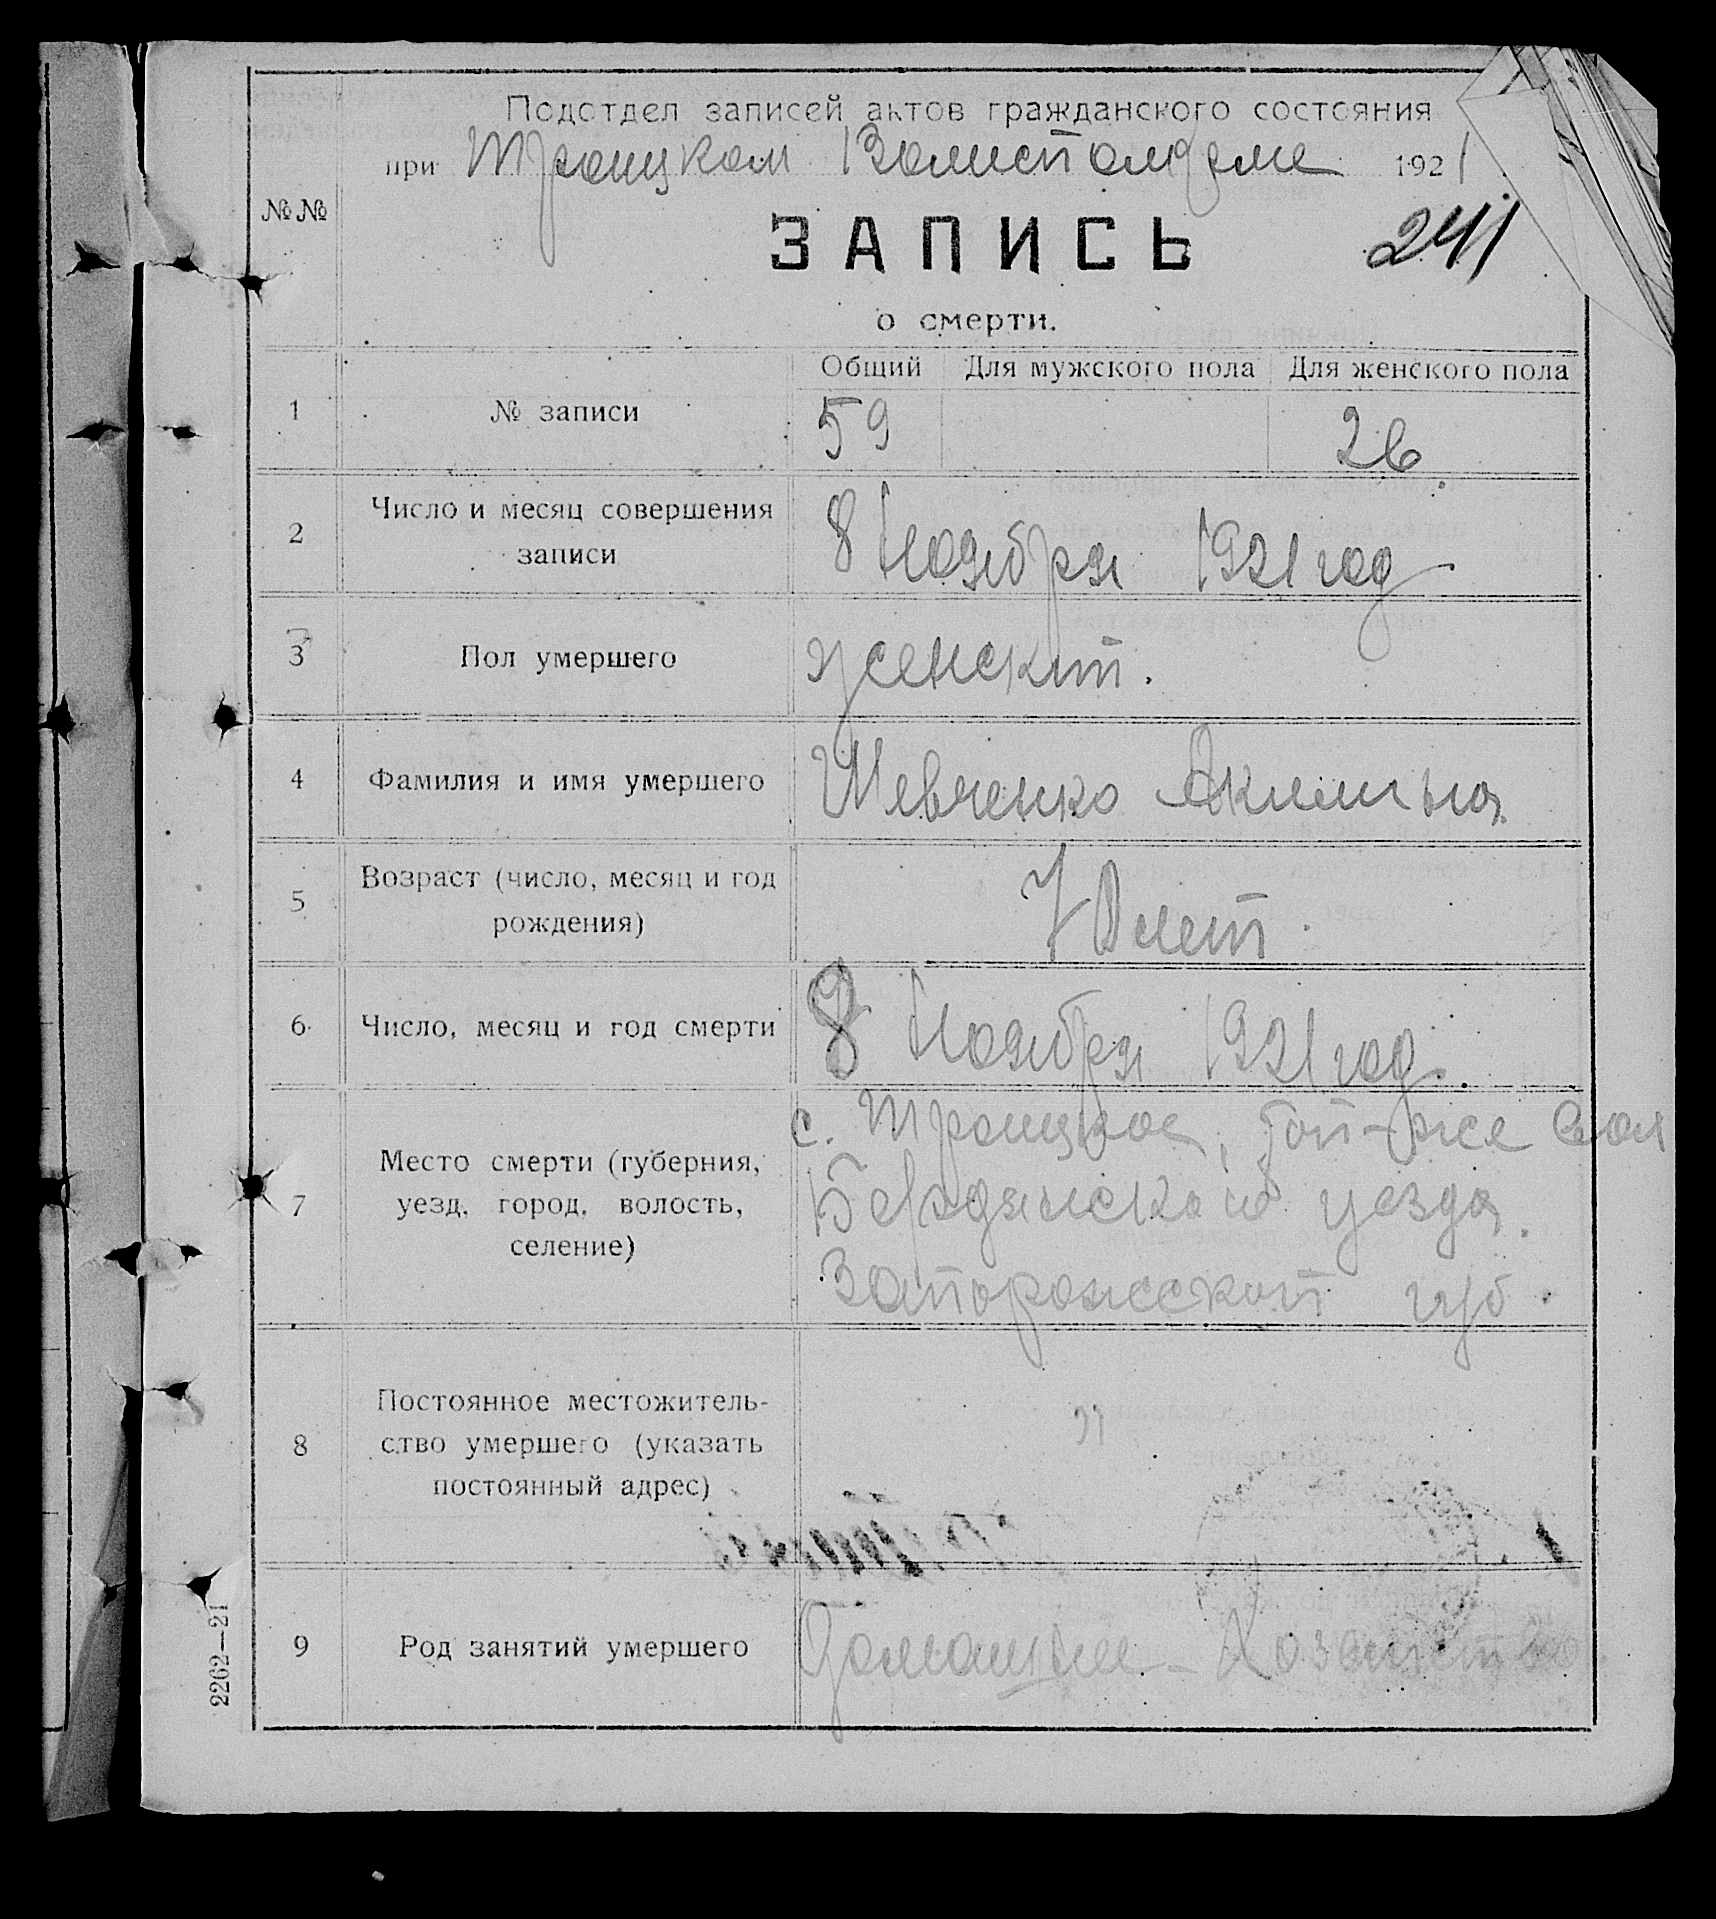 Подотдел записей актов гражданского состояния
при Троицком Волисполкоме 1921
№№
ЗАПИСЬ
241
о смерти.
Общий Для мужского пола Для женского пола
1 № записи 59 26
2 Число и месяц совершения
записи
8 Ноября 1921 год
3 Пол умершего женский.
4 Фамилия и имя умершего Шевченко
5 Возраст (число, месяц и год
рождения)
70 лет
6 Число, месяц и год смерти 8 Ноября 1921 год.
7 Место смерти (губерния,
уезд, город, волость,
селение)
с. Троицкое, той-же вол
Бердянского уезда.
Запорожской губ.
8 Постоянное местожитель-
ство умершего (указать
постоянный адрес)
"
9 Род занятий умершего Домашнее Хозяйство
2262—21